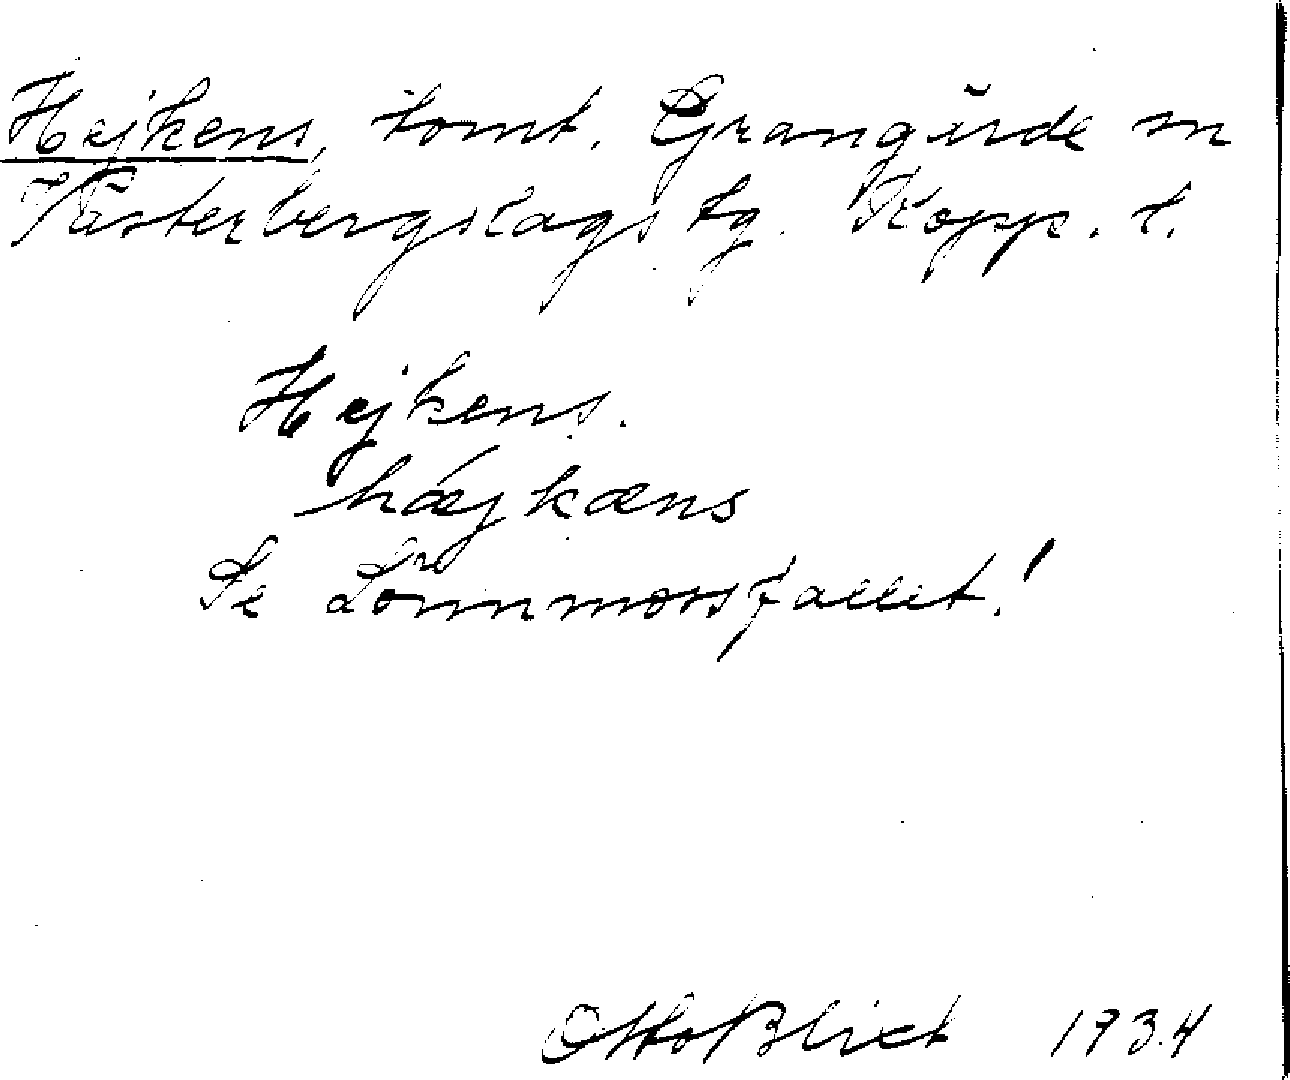 Hejkens, tomt. Grangärde sn
Västerbergslags tg. Kopp. l.
Hejkens.
hæjkæns
Se Lönnmorsfallet!
Otto Blixt 1934